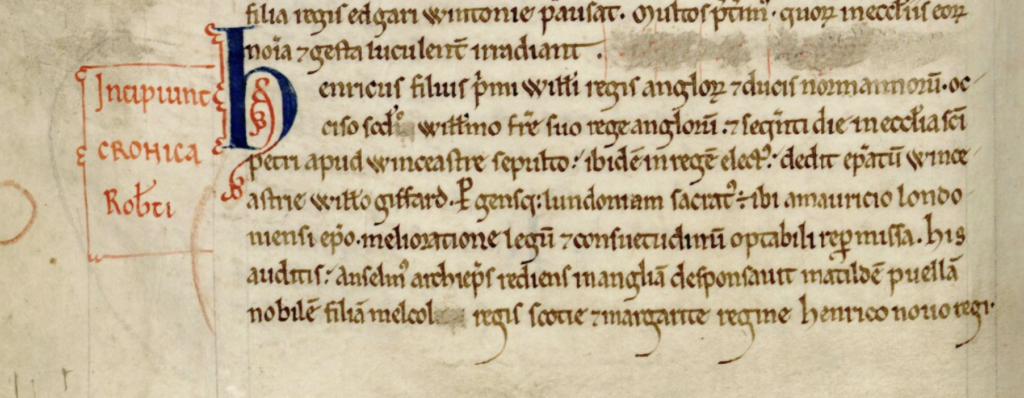 filia regis edgari wintonie pausat. Multos p̄t̄m̄. quoꝝ in eccl̄iis eoꝝ
noīa ⁊ gesta luculent̄ irradiant.
Incipiunt
cronica
Rob̄ti
Henricus filius p̄mi will̄i regis angloꝝ ⁊ ducis normannorū. oc
ciso scd̄o will̄mo fr̄e suo rege anglorū. ⁊ seq̄nti die in eccl̄ia sc̄i
petri apud winceastre sepulto: ibidē in regē elect᷒. dedit ep̄atū wince
astrie will̄o giffard. Ꝑgensq: lundoniam sacrat᷒ ÷ ibi a mauricio londo
niensi ep̄o. melioratione legū ⁊ consuetudinū optabili rep̱missa. his
auditis: anselm᷒ archiep̄s rediens in angliā desponsauit matildē puellā
nobilē filiā melcol regis scotie ⁊ margarite regine henrico nouo regi.